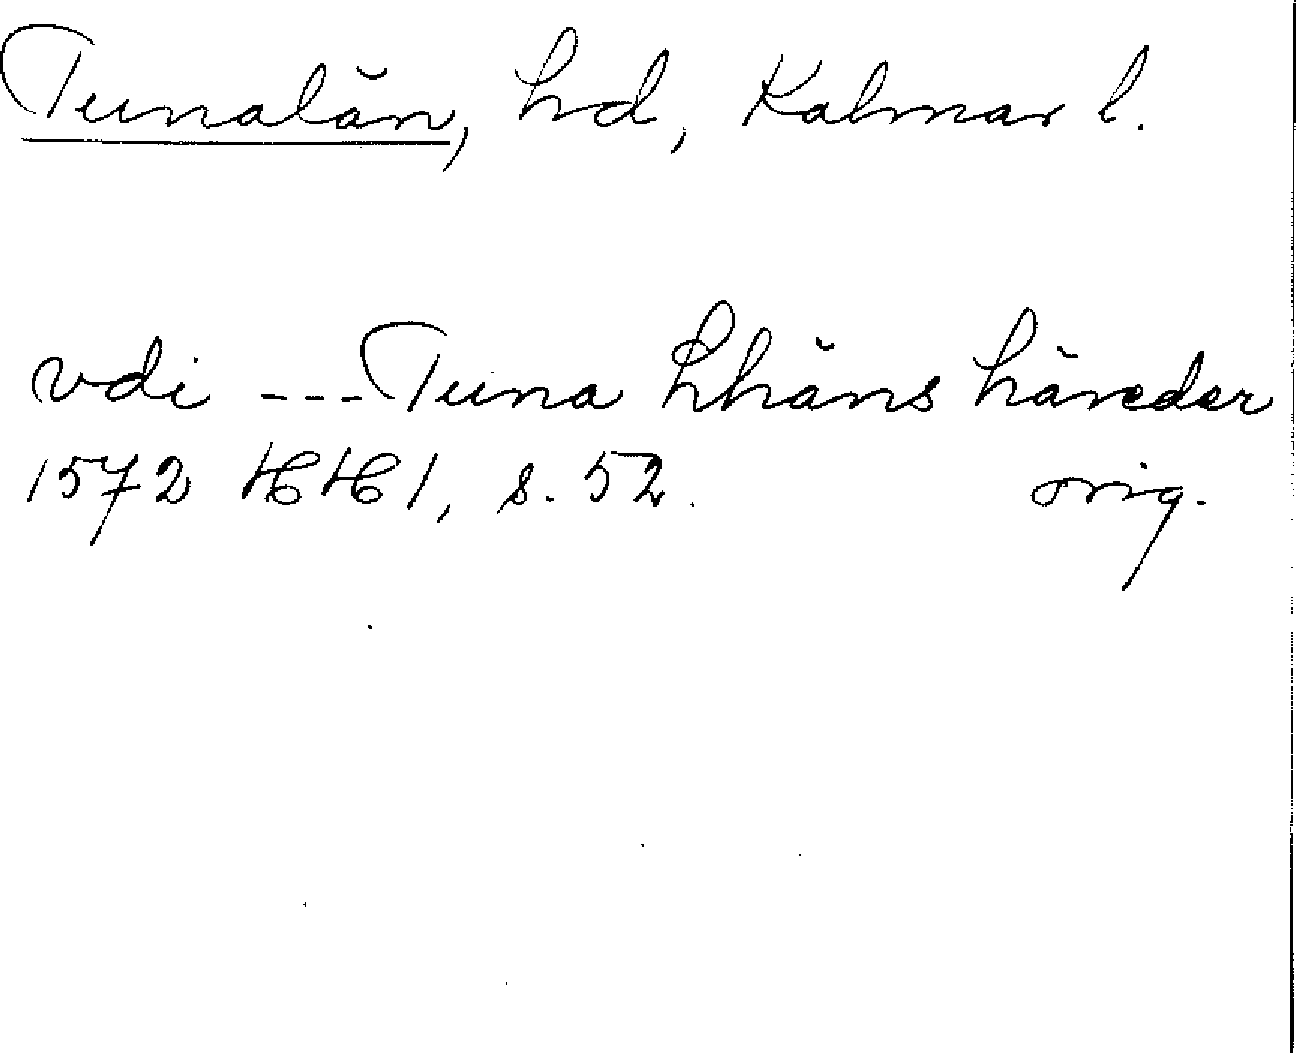 Tunalän, hd, Kalmar l.
vdi --- Tuna Lhäns häreder
1572 HH 1, s. 52. orig.